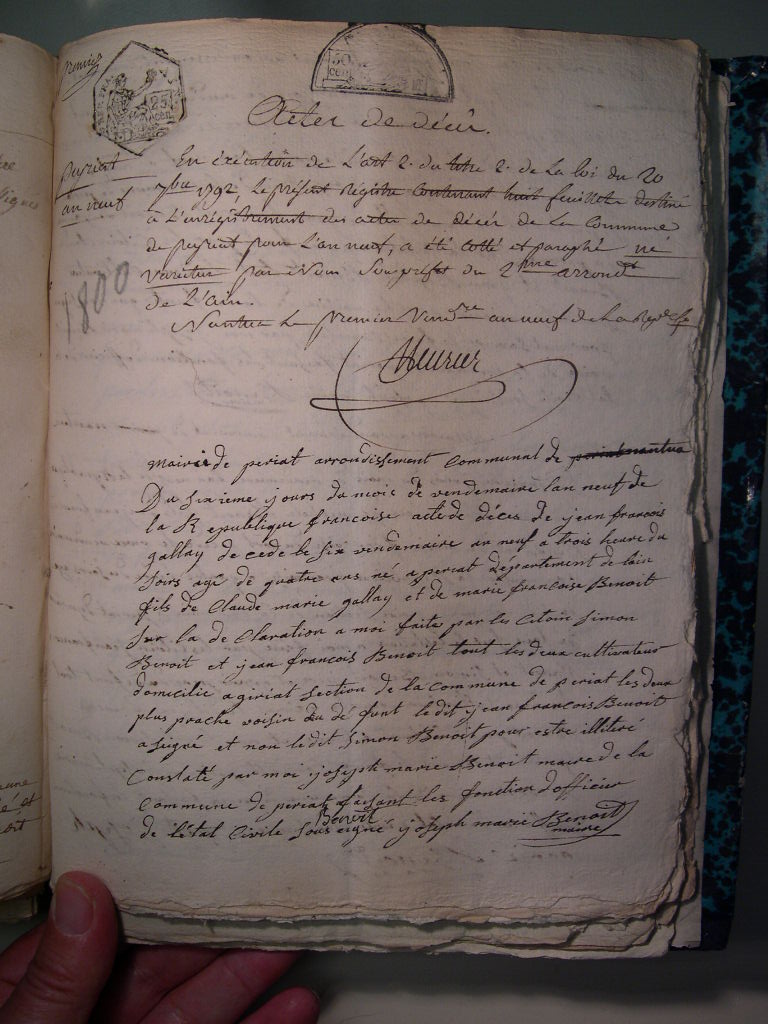 premier
25
50
Actes de décès.
peyriat
an neuf
En exécution de L'art 2. du titre 2. de La loi du 20
7bre 1792, Le présent registre contenant huit feuillets destiné
à L'enregistrement des actes de décès de La Commune
de peyriat pour L'an neuf, a été cotté et paraphé né
varietur par Nous Sousprefet du 2me arrondt
de L'ain.
1800
Nantua Le premier Vendre an neuf de La
mairie de periat arrondissement Communal de nantua
Du sixieme jours du mois de vendemaire lan neuf de
la Republique francoise acte de déces de jean francois
gallay de cede le six vendemaire an neuf a trois heure du
soirs agé de quatre ans né a periat département de lain
fils de Claude marie gallay et de marie francoise Benoit
sur la de Claration a moi faite par les Citoin simon
Benoit et jean francois Benoit tout les deux cultivateur
domicilie a giriat section de la commune de periat les deux
plus prache voisin du dé funt ledit jean francois Benoit
a signé et non ledit simon Benoit pour estre illiteré
Constaté par moi joseph marie Benoit maire de la
Commune de periat faisant les fonction d'officier
de létat Civile sous signé joseph marie Benoit
Benoit
maire